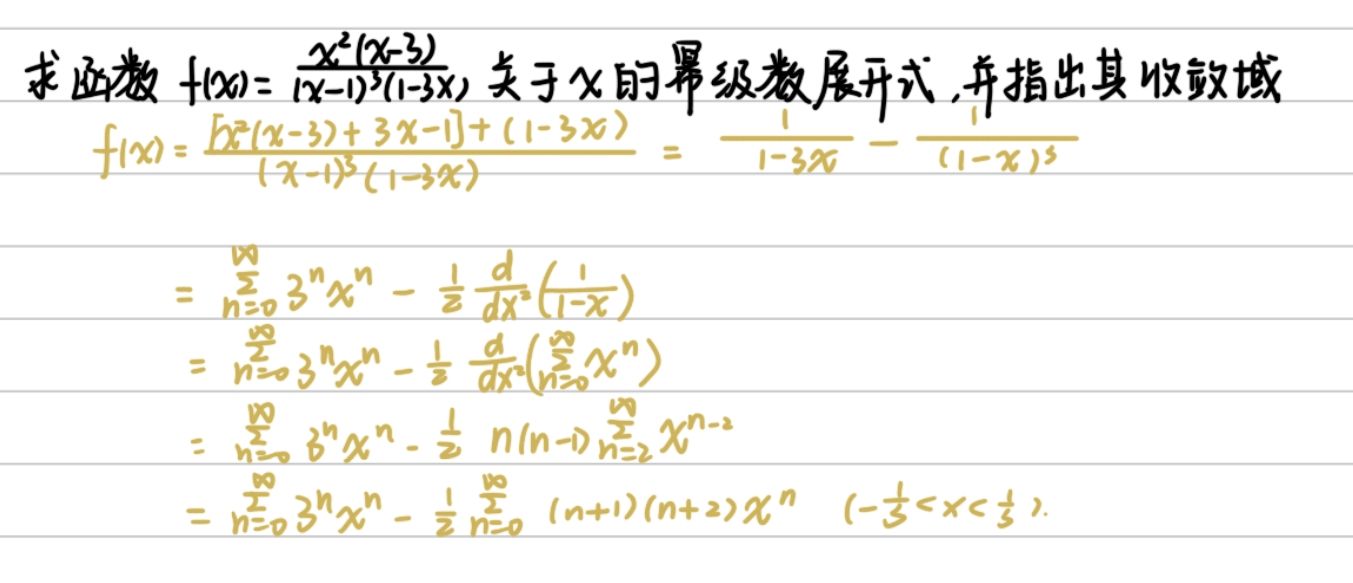 求函数 f(x)= \frac{x²(x-3)}{(x-1)³(1-3x)} 关于x的幂级数展开式,并指出其收敛域
f(x)= \frac{[x²(x-3)+3x-1]+(1-3x)}{(x-1)³(1-3x)} = \frac{1}{1-3x} - \frac{1}{(1-x)³}
= \sum_{n=0}^{∞} 3^n x^n - \frac{1}{2} \frac{d}{dx²}(\frac{1}{1-x})
= \sum_{n=0}^{∞} 3^n x^n - \frac{1}{2} \frac{d}{dx²}(\sum_{n=0}^{∞} x^n)
= \sum_{n=0}^{∞} 3^n x^n - \frac{1}{2} n(n-1) \sum_{n=2}^{∞} x^{n-2}
= \sum_{n=0}^{∞} 3^n x^n - \frac{1}{2} \sum_{n=0}^{∞} (n+1)(n+2)x^n (-\frac{1}{3}<x<\frac{1}{3}).